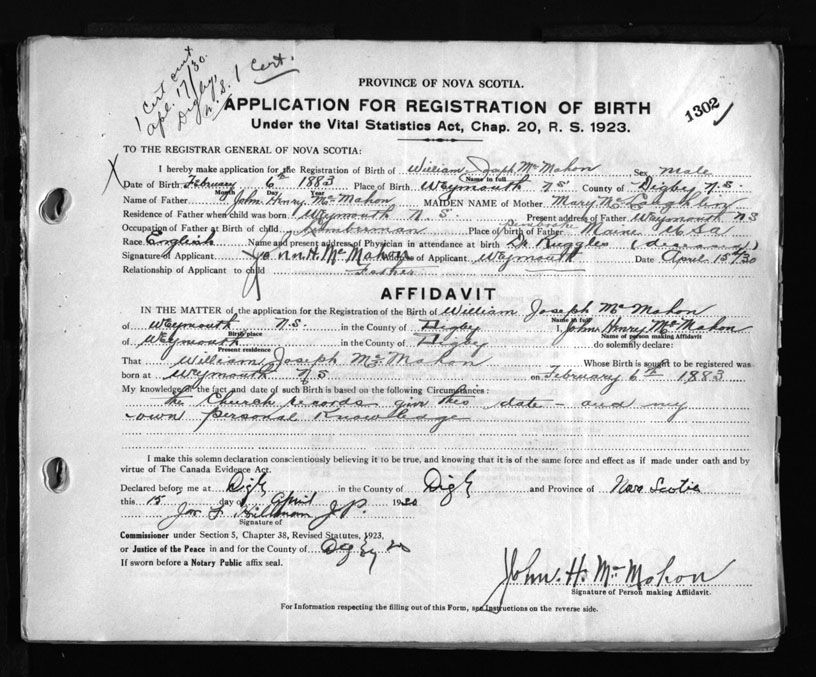 1 Cert out
Apl. 17/30.
Digby,
N.S. 1 Cert.
PROVINCE OF NOVA SCOTIA.
1302
APPLICATION FOR REGISTRATION OF BIRTH
Under the Vital Statistics Act, Chap. 20, R. S. 1923.
TO THE REGISTRAR GENERAL OF NOVA SCOTIA:
X
I hereby make application for the Registration of Birth of William Joseph McMahon Sex Male
Name in full
Date of Birth February 6th 1883 Place of Birth Weymouth N S County of Digby N.S.
Month Day Year
Name of Father John Henry McMahon MAIDEN NAME of Mother Mary Mc Loughlin
Residence of Father when child was born Weymouth N. S. Present address of Father Weymouth N S
Occupation of Father at Birth of child Lumberman Place of birth of Father Pembroke Maine U S a
Race English Name and present address of Physician in attendance at birth Dr Ruggles (deceased)
Signature of Applicant John H. McMahon Address of Applicant Weymouth Date April 15th/30
Relationship of Applicant to child Father
AFFIDAVIT
IN THE MATTER of the application for the Registration of the Birth of William Joseph McMahon
Name in full
of Weymouth N.S. in the County of Digby I, John Henry McMahon
Birth place Name of person making Affidavit
of Weymouth in the County of Digby do solemnly declare:
Present residence
That William Joseph McMahon Whose Birth is sought to be registered was
born at Weymouth N S on February 6th 1883
My knowledge of the fact and date of such Birth is based on the following Circumstances:
the Church records give this date - and my
own personal Knowledge
I make this solemn declaration conscientiously believing it to be true, and knowing that it is of the same force and effect as if made under oath and by
virtue of The Canada Evidence Act.
Declared before me at Digby in the County of Digby and Province of Nova Scotia
this 15 day of April 1930
J.P.
Signature of
Commissioner under Section 5, Chapter 38, Revised Statutes, 1923,
or Justice of the Peace in and for the County of Digby
If sworn before a Notary Public affix seal.
John. H. McMahon
Signature of Person making Affidavit.
For Information respecting the filling out of this Form, see Instructions on the reverse side.